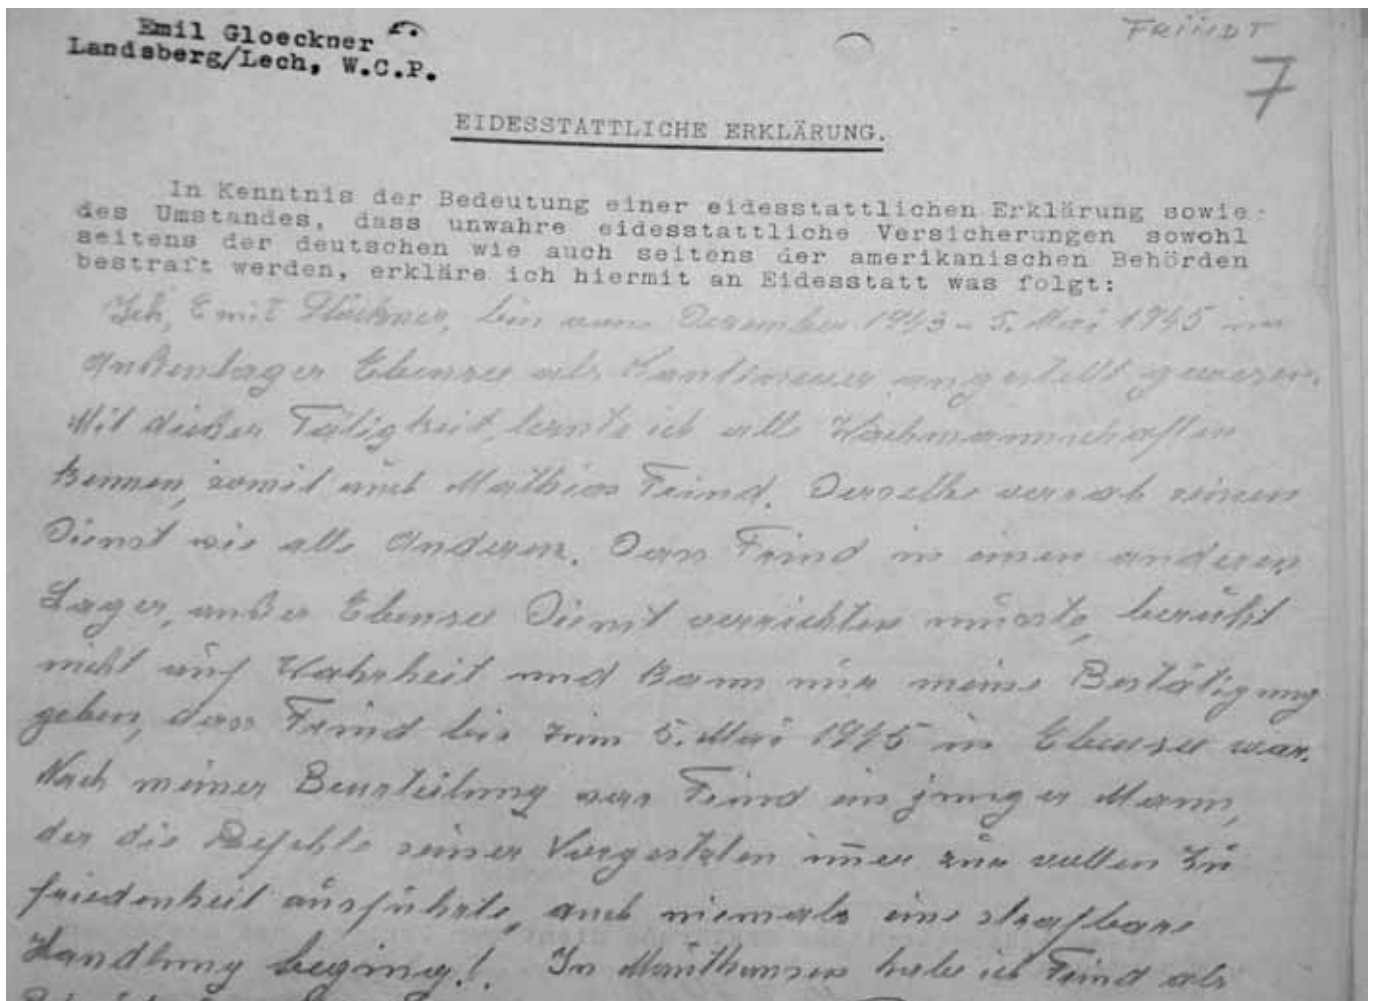 Emil Gloeckner
Landsberg/Lech, W.C.P.
FRIINDT
7
EIDESSTATTLICHE ERKLÄRUNG.
In Kenntnis der Bedeutung einer eidesstattlichen Erklärung sowie
des Umstandes, dass unwahre eidesstattliche Versicherungen sowohl
seitens der deutschen wie auch seitens der amerikanischen Behörden
bestraft werden, erkläre ich hiermit an Eidesstatt was folgt:
Ich, Emil Glöckner, bin vom Dezember 1943 - 5. Mai 1945 im
Außenlager Ebensee als Kantineuer angestellt gewesen.
Mit dießer Tätigkeit, lernte ich alle Wachmannschaften
kennen, somit auch Mathias Frind. Derselbe versah seinen
Dienst wie alle Anderen. Das Frind in einen anderen
Lager, außer Ebensee Dienst verrichten müsste, berüht
nicht auf Wahrheit und kann nur meine Bestätigung
geben, dass Frind bis zum 5. Mai 1945 in Ebensee war.
Nach meiner Beurteilung war Frind ein junger Mann,
der die Befehle seiner Vorgesetzten immer zur vollen Zu
friedenheit ausführte, auch niemals eine strafbare
Handlung beging!. In Mauthausen habe ich Frind als